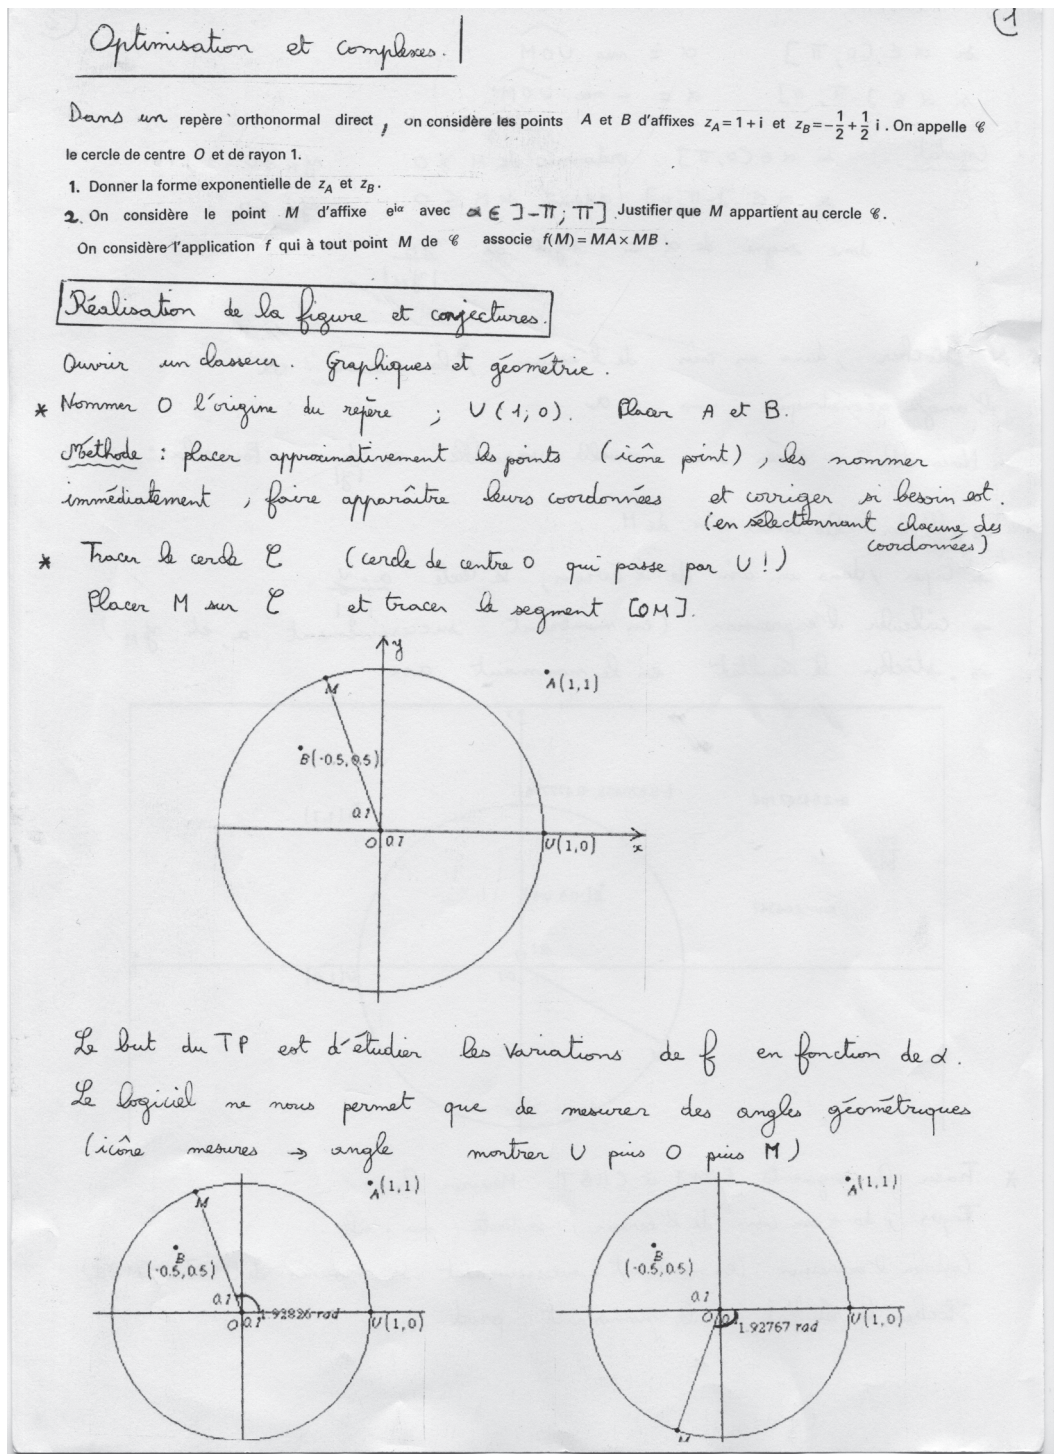 1
Optimisation et complexes.
Dans un repère orthonormal direct, on considère les points A et B d'affixes z_A = 1 + i et z_B = -1/2 + 1/2 i. On appelle 𝒞
le cercle de centre O et de rayon 1.
1. Donner la forme exponentielle de z_A et z_B.
2. On considère le point M d'affixe e^{iα} avec α ∈ ]-π; π] Justifier que M appartient au cercle 𝒞.
On considère l'application f qui à tout point M de 𝒞 associe f(M) = MA × MB.
Réalisation de la figure et conjectures.
Ouvrir un classeur. Graphiques et géométrie.
* Nommer O l'origine du repère ; U(1;0). Placer A et B.
Méthode : placer approximativement les points (icône point), les nommer
immédiatement, faire apparaître leurs coordonnées et corriger si besoin est.
(en sélectionnant chacune des
coordonnées)
* Tracer le cercle 𝒞 (cercle de centre O qui passe par U!)
Placer M sur 𝒞 et tracer le segment [OM].
y
M
A(1,1)
B(-0.5,0.5)
0.1
O 0.1
U(1,0)
x
Le but du TP est d'étudier les variations de f en fonction de α.
Le logiciel ne nous permet que de mesurer des angles géométriques
(icône mesures → angle montrer U puis O puis M)
M
A(1,1)
B
(-0.5,0.5)
0.1
1.92826 rad
O 0.1
U(1,0)
A(1,1)
B
(-0.5,0.5)
0.1
O 0.1
1.92767 rad
U(1,0)
M